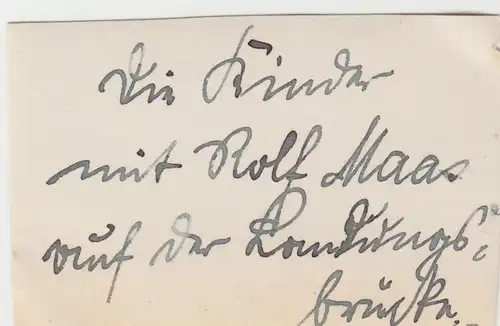 Die Kinder
mit Rolf Maas
auf der Landungs-
brücke.